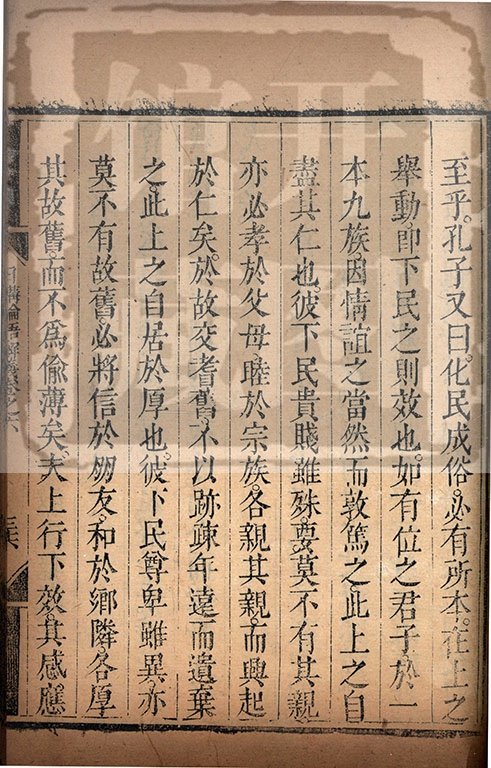 至乎。孔子又曰。化民成俗。必有所本。在上之
舉動即下民之則效也。如有位之君子於一
本九族。因情誼之當然而敦篤之。此上之自
盡其仁也。彼下民貴賤雖殊。要莫不有其親。
亦必孝於父母。睦於宗族。各親其親。而興起
於仁矣。於故交耆舊。不以跡疎年遠而遺棄
之。此上之自居於厚也。彼下民尊卑雖異。亦
莫不有故舊。必將信於朋友。和於鄉隣。各厚
其故舊。而不爲偷薄矣。夫上行下效。其感應
日講